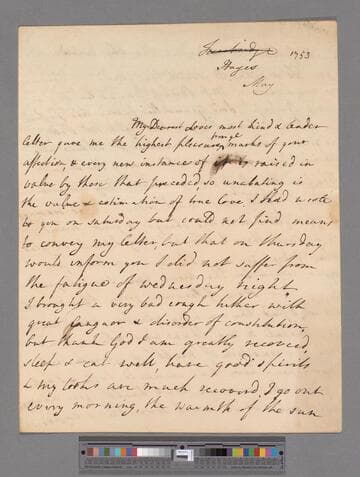 1753
Hayes
May
My Dearest Loves most kind & tender
letter gave me the highest pleasure, marks of your
affection, & every new instance of it is raised in
value by those that preceded, so unclating is
the value & estimation of true love I had wrote
to you on saturday but could not find means
to convey my letter, but that on thursday
would inform you I did not suffer from
the fatigue of wednesday night
I brought a very bad cough hither with
great languor & disorder of constitution,
but thank God I am greatly recoverd,
sleep & eat well, have good spirits
& my looks are much recoverd, I go out
every morning, the warmth of the sun